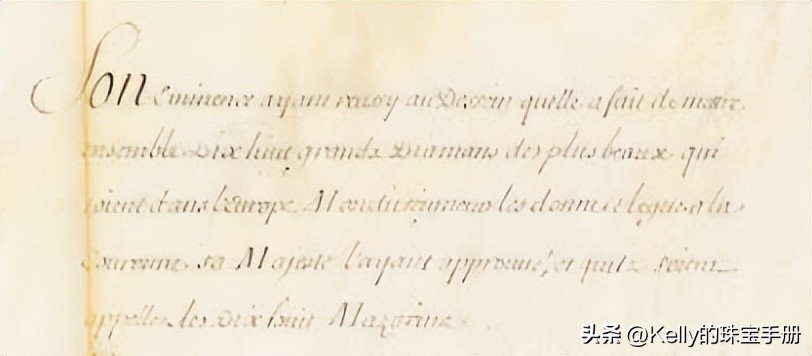 Son Eminence ayant reuey au Dessein quelle a fait de mettre
ensemble Dix huit grands Diamans des plus beaux qui
soient dans l'Europe Mondict seigneur les donne et legue a la
Couronne sa Majeste l'ayant approuué, et quilz soient
appellez les Dix huit Mazarins
头条 @Kelly的珠宝手册